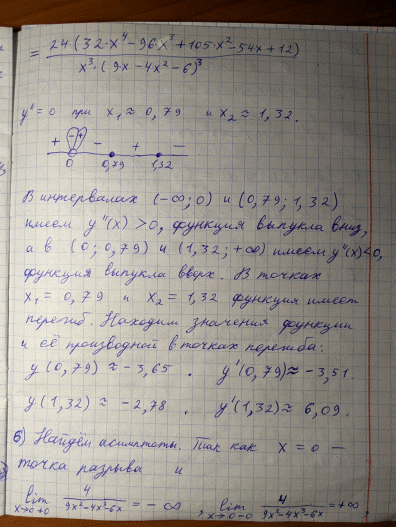 = 24(32·x⁴ - 96x³ + 105·x² - 54x + 12) / x³·(9x - 4x² - 6)³
y'' = 0 при x₁ ≈ 0,79 и x₂ ≈ 1,32.
+ - + - + -
0 0,79 1,32
В интервалах (-∞; 0) и (0,79; 1,32)
имеем y''(x) > 0, функция выпукла вниз,
а в (0; 0,79) и (1,32; +∞) имеем y''(x) < 0,
функция выпукла вверх. В точках
x₁ = 0,79 и x₂ = 1,32 функция имеет
перегиб. Находим значения функции
и её производной в точках перегиба:
y(0,79) ≈ -3,65. y'(0,79) ≈ -3,51.
y(1,32) ≈ -2,78. y'(1,32) ≈ 6,09.
6) Найдём асимптоты. Так как x = 0 —
точка разрыва и
lim x→0+0 4 / 9x²-4x³-6x = -∞, lim x→0-0 4 / 9x²-4x³-6x = +∞,